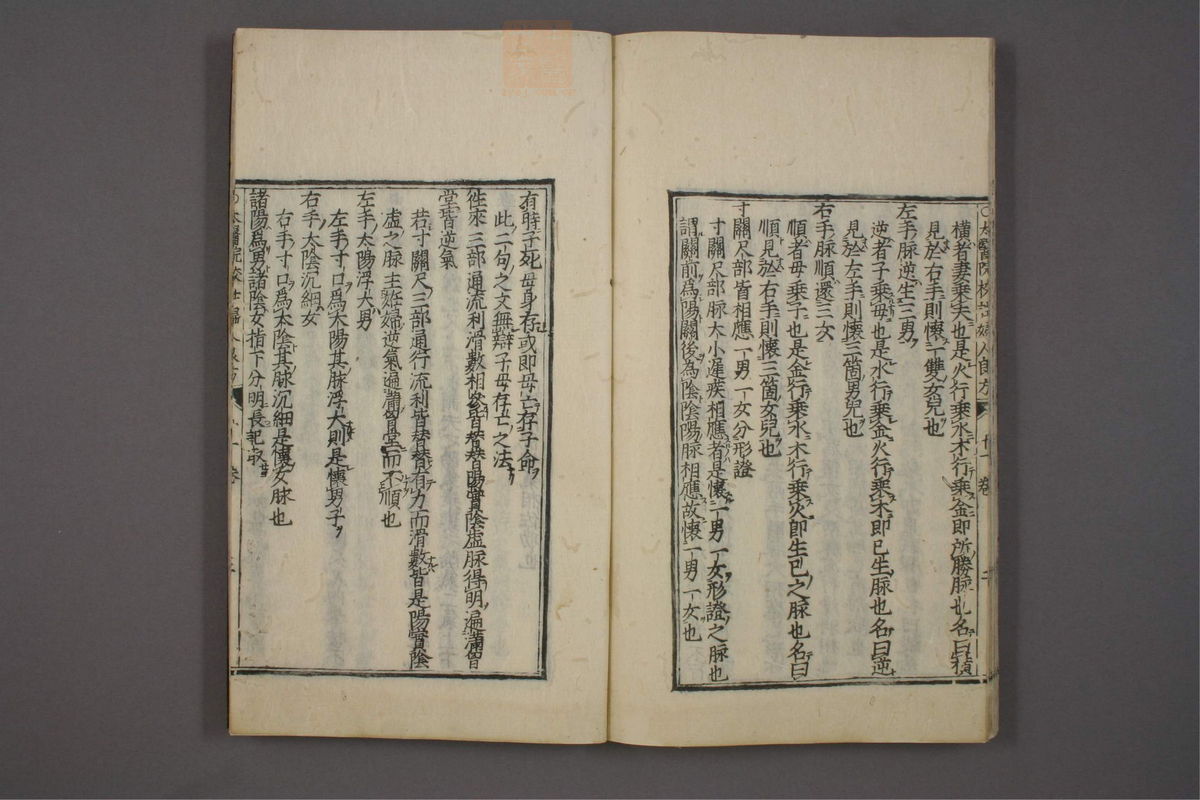 ○太醫院校註婦人良方 廿一卷 二
橫者妻乗夫也是火行乗水木行乗金即所勝脉也名曰橫
見於右手則懷一雙女兒也
左手脉逆生三男
逆者子乗母也是水行乗金火行乗木即巳生脉也名曰逆
見於左手則懷三箇男兒也
右手脉順還三女
順者母乗子也是金行乗水木行乗火即生巳之脉也名曰
順見於右手則懷三箇女兒也
寸關尺部皆相應一男一女分形證
寸關尺部脉大小遲疾相應者是懷一男一女形證之脉也
謂關前為陽關後為陰陰陽脉相應故懷一男一女也
有時子死母身存或即母亡存子命
此二句之文無辯子母存亡之法
徃來三部通流利滑數相參皆替替陽實陰虛脉得明遍滿胷
堂皆逆氣
若寸關尺三部通行流利皆替替有力而滑數皆是陽實陰
虛之脉主姙婦逆氣遍滿胷堂而不順也
左手太陽浮大男
左手寸口為太陽其脉浮大則是懷男子
右手太陰沉細女
右手寸口為太陰其脉沉細是懷女脉也
諸陽為男諸陰女指下分明長記取